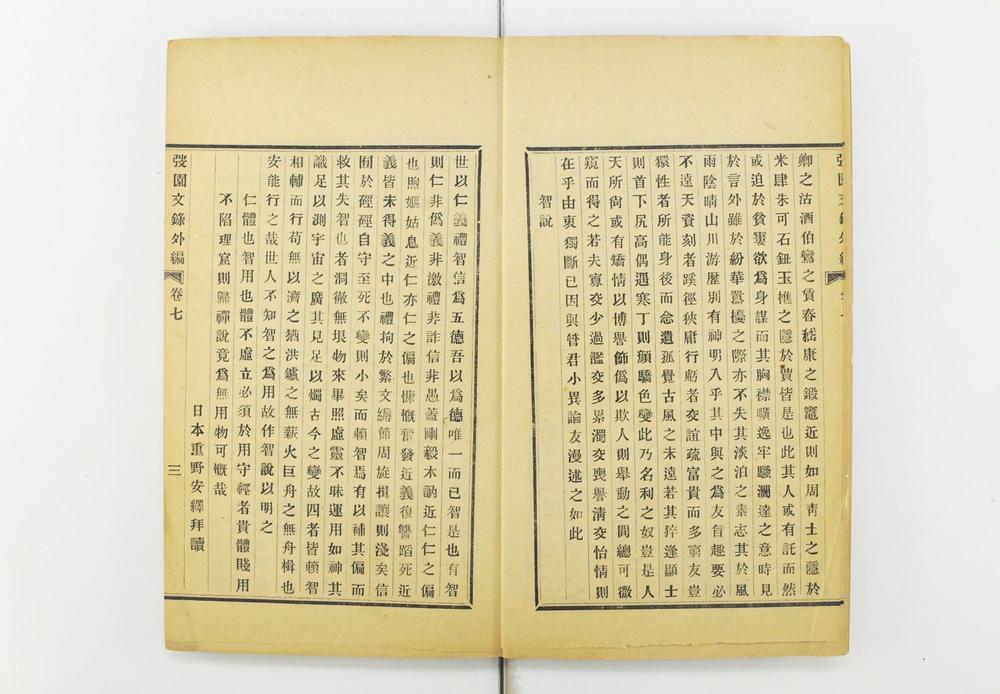 卿之沽酒伯鸞之賃舂嵇康之鍛竈近則如周靑士之隱於
米肆朱可石鈕玉樵之隱於賈皆是也此其人或有託而然
或迫於貧窶欲爲身謀而其胸襟曠逸牢騷濶達之意時見
於言外雖於紛華囂擾之際亦不失其淡泊之素志其於風
雨陰晴山川游歷别有神明入乎其中與之爲友旨趣要必
不遠天資刻者蹊徑狹庸行虧者交誼疏富貴而多窮友豈
獧性者所能身後而念遺孤覺古風之未遠若其猝逢顯士
則首下尻高偶遇寒丁則顏驕色變此乃名利之奴豈是人
天所尙或有矯情以博譽飾僞以欺人則舉動之間總可微
窺而得之若夫寡交少過濫交多累濁交喪譽淸交怡情則
在乎由衷獨斷已因與管君小異論友漫述之如此
智說
世以仁義禮智信爲五德吾以爲德唯一而已智是也有智
則仁非僞義非激禮非詐信非愚蓋剛毅木訥近仁仁之偏
也煦嫗姑息近仁亦仁之偏也慷慨奮發近義復讐蹈死近
義皆未得義之中也禮拘於繁文縟節周旋揖讓則淺矣信
囿於硜硜自守至死不變則小矣而賴智焉有以補其偏而
救其失智也者洞徹無垠物來畢照虛靈不昧運用如神其
識足以測宇宙之廣其見足以燭古今之變故四者皆賴智
相輔而行苟無以濟之猶洪鑪之無薪火巨舟之無舟楫也
安能行之哉世人不知智之爲用故作智說以明之
仁體也智用也體不虛立必須於用守經者貴體賤用
不陷理窟則歸禪說竟爲無用物可慨哉
日本重野安繹拜讀
弢園文錄外編
卷七
三